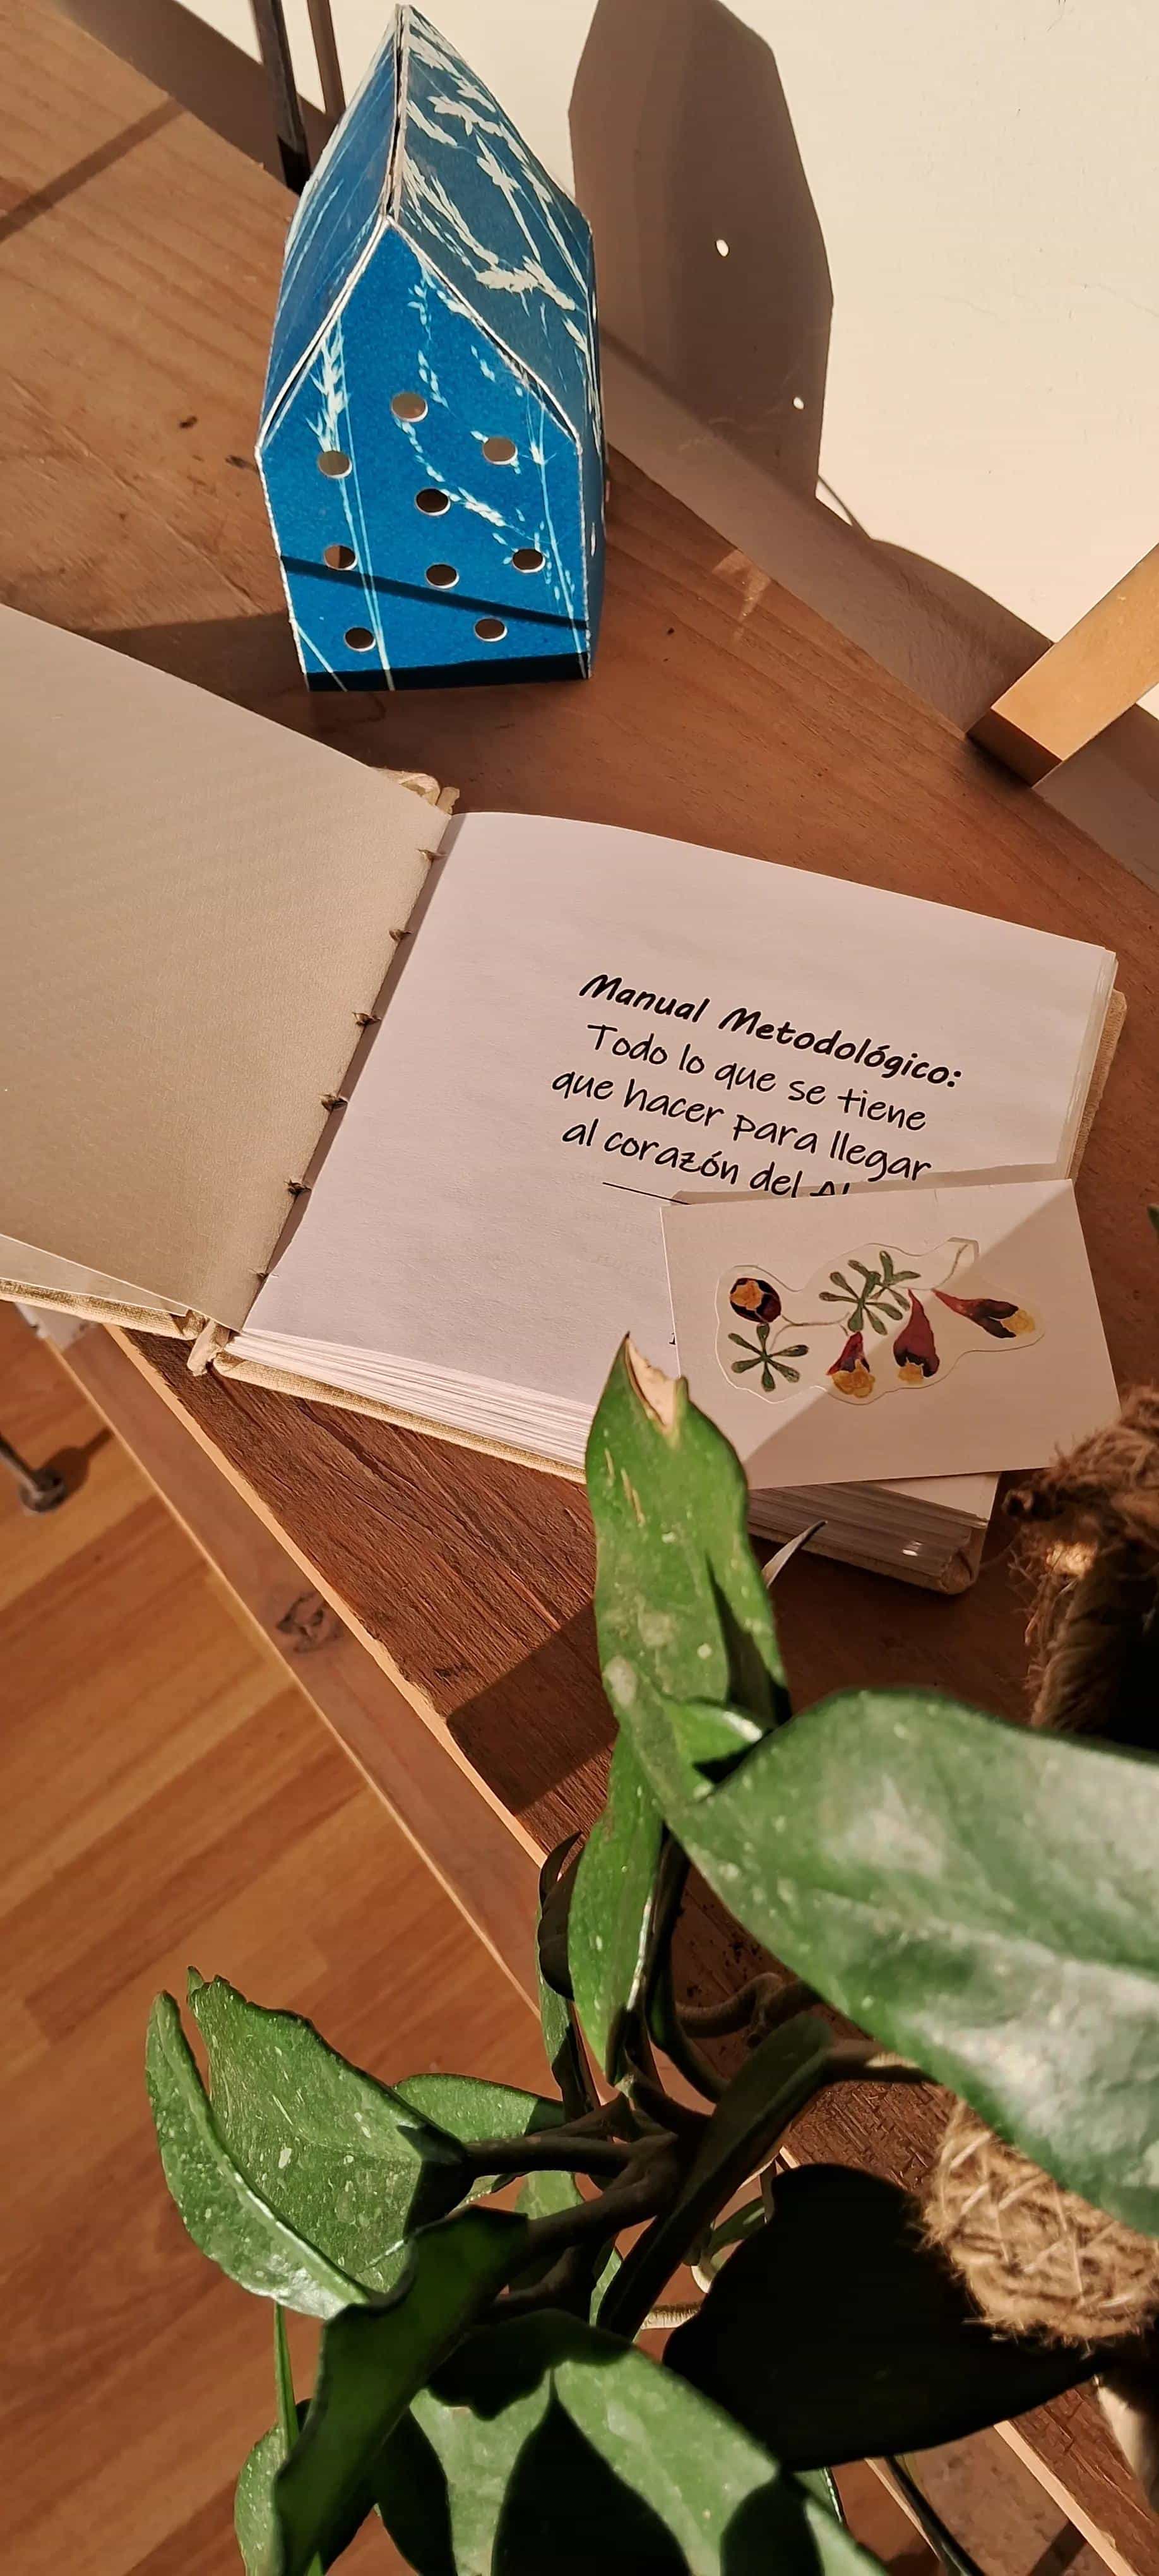 Manual Metodológico:
Todo lo que se tiene
que hacer para llegar
al corazón del